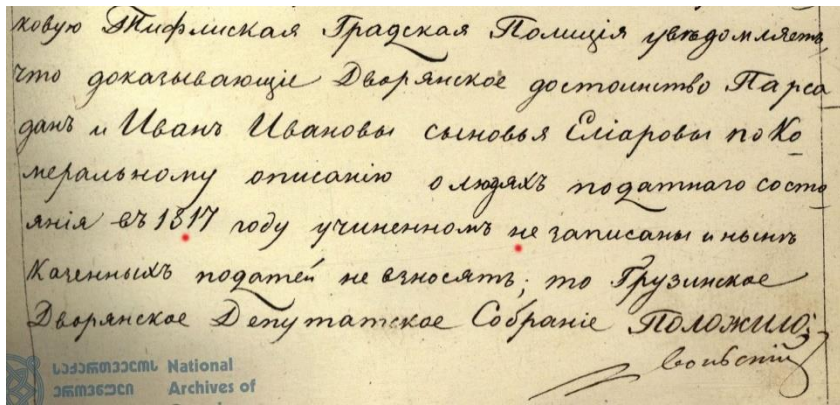 ковую Тифлиская Градская Полиція увѣдомляетъ,
что доказывающіе Дворянское достоинство Парса
данъ и Иванъ Ивановы сыновья Еліаровы по Ка
меральному описанію о людяхъ податнаго состо
янія въ 1817 году учиненномъ не записаны и нынѣ
Казенныхъ податей не взносятъ; то Грузинское
Дворянское Депутатское Собраніе Положило:
საქართველოს National
ეროვნული Archives of